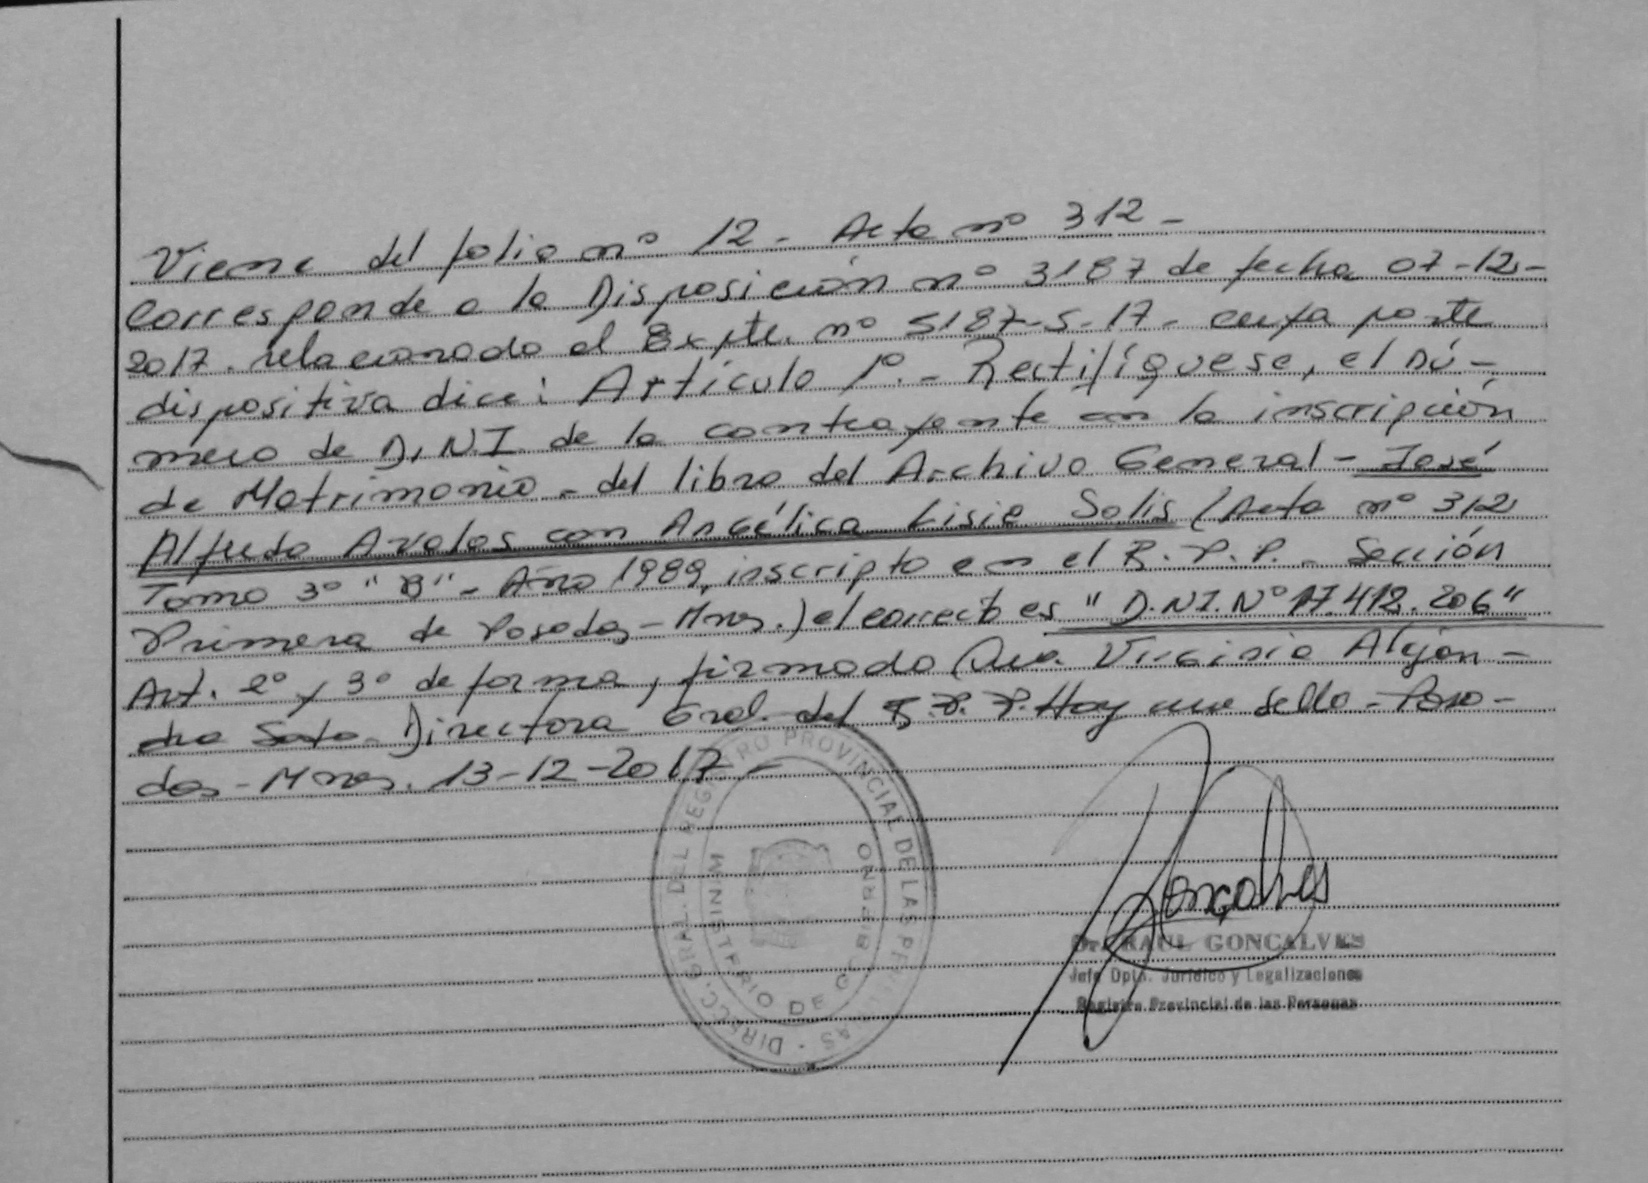 Viene del folio nº 12 - Acta nº 312 -
Corresponde a la Disposición nº 3187 de fecha 07-12-
2017. relacionado al Expte. nº 5187-S-17- cuya parte
dispositiva dice: Artículo 1º.- Rectifíquese, el Nú-
mero de D.N.I. de la contrayente en la inscripción
de Matrimonio - del libro del Archivo General - José
Alfredo Avalos con Angélica Lisie Solis (Acta nº 312
Tomo 3º "B" - Año 1989, inscripto en el R.P.P. - Sección
Primera de Posadas - Mnes.) el correcto es "D.N.I. Nº 17.412.206"
Art. 2º y 3º de forma, firmado Dra. Virginia Alejan-
dra Soto - Directora Gral. del R.P.P. Hay un sello - Posa-
das - Mnes. 13-12-2017 -
DIRECC. GRAL. DEL REGISTRO PROVINCIAL DE LAS PERSONAS
MINISTERIO DE GOBIERNO
Goncalves
Dr. RAUL GONCALVES
Jefe Dpto. Jurídico y Legalizaciones
Registro Provincial de las Personas